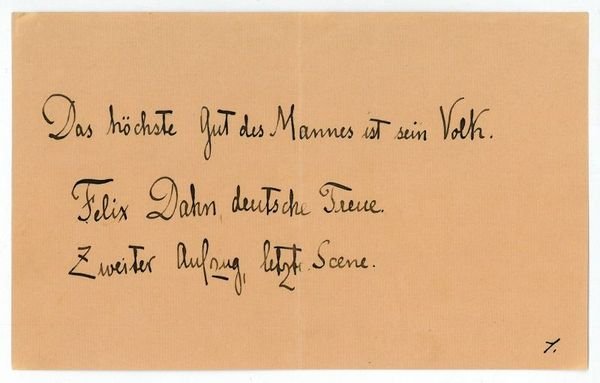 Das höchste Gut des Mannes ist sein Volk.
Felix Dahn, deutsche Treue.
Zweiter Aufzug, letzte Scene.